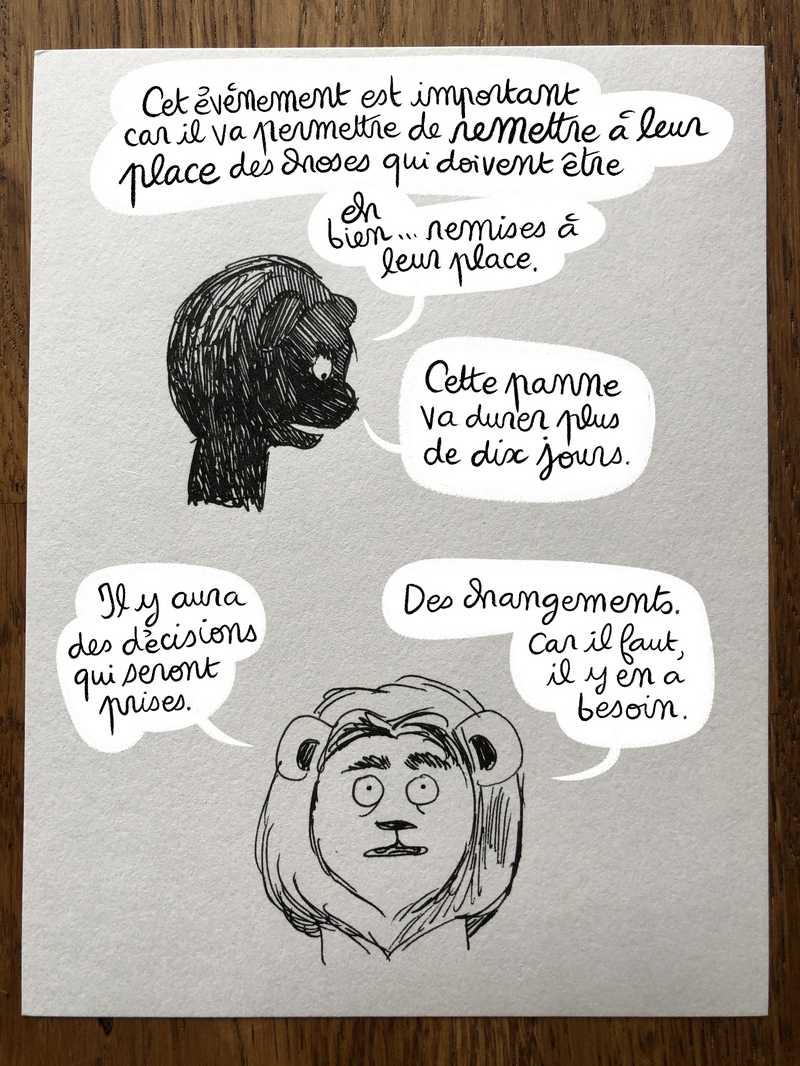 Cet événement est important
car il va permettre de remettre à leur
place des choses qui doivent être
eh
bien... remises à
leur place.
Cette panne
va durer plus
de dix jours.
Il y aura
des décisions
qui seront
prises.
Des changements.
Car il faut,
il y en a
besoin.